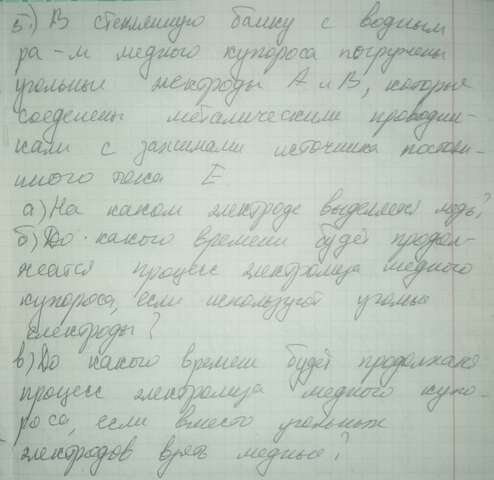 5.) В стеклянную банку с водным
ра-м медного купороса погружены
угольные электроды А и В, которые
соеденены металическими проводни-
ками с зажимами источника постоян-
нного тока Е
а) На каком электроде выделяется медь?
б) До какого времени будет продол-
жатся процесс электролиза медного
купороса, если используют угольные
електроды?
в) До какого времени будет продолжатся
процесс электролиза медного купо-
роса, если вместо угольных
электродов взять медные?